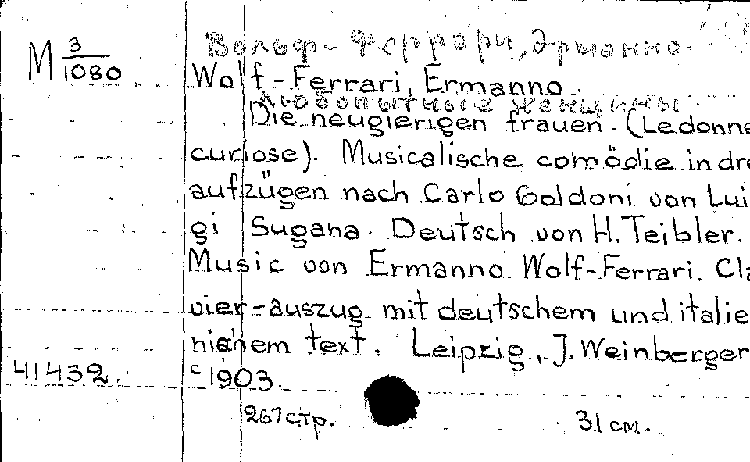 Вольф-Феррари, Эрманно.
М 3/1080
Wolf-Ferrari, Ermanno.
Любопытные женщины
Die neugierigen frauen. (Ledonne
curiose). Musicalische comödie in dre
aufzügen nach Carlo Goldoni von Lui
gi Sugana. Deutsch von H. Teibler.
Music von Ermanno Wolf-Ferrari. Cla
vier-auszug mit deutschem und italie
nischem text. Leipzig, J. Weinberger
41432. c1903.
267 стр. 31 см.